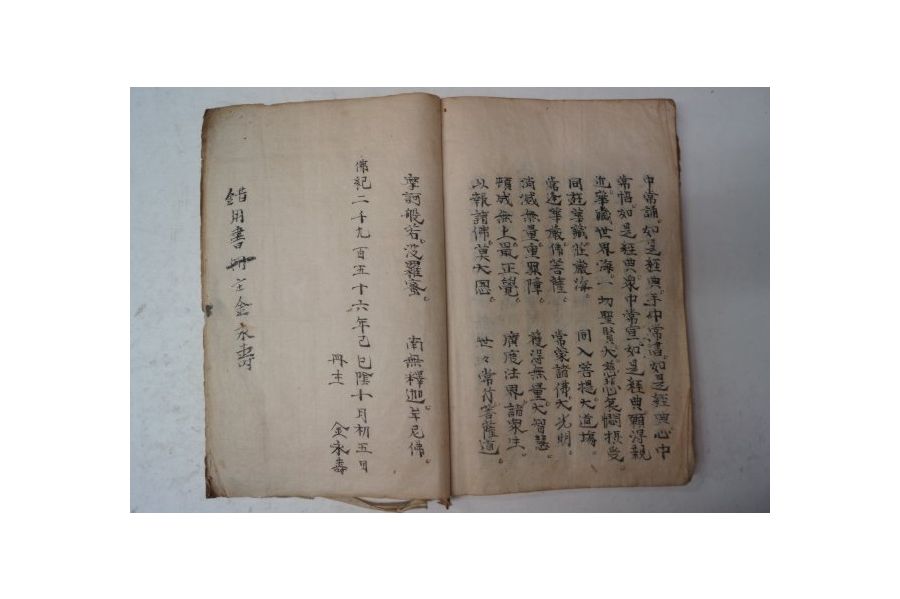 中常誦。如是經典。手中常書。如是經典心中
常悟如是經典。衆中常宣。如是經典願得親
近。華藏世界海。一切聖賢大慈悲哀憫摂受。
同遊華藏莊嚴海。 同入菩提大道塲
常逢華嚴佛菩薩。 常蒙諸佛大光明
消滅無量重罪障 獲得無量大智慧
頓成無上最正覺。 廣度法界諸衆生
以報諸佛莫大恩 世々常行菩薩道
摩訶般若。波羅蜜。 南無釋迦牟尼佛。
佛紀二千九百五十六年己巳陰十月初五日
冊主 金永壽
借用書冊主金永壽